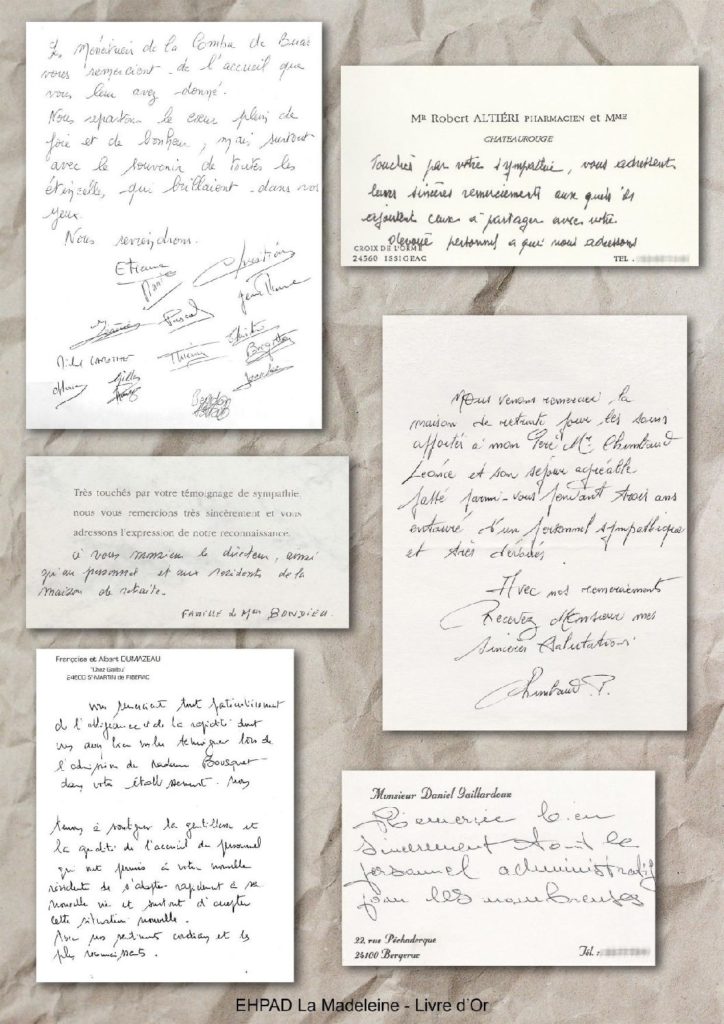 Les Ménétriers de la Combra de Buais
vous remercient de l'accueil que
vous leur avez donné.
Nous repartons le cœur plein de
joie et de bonheur, mais surtout
avec le souvenir de toutes les
étincelle, qui brillaient dans vos
yeux.
Nous reviendrons.
Etienne
Christian
Pascal
Thierry
Brigitte
Mr Robert ALTIÉRI PHARMACIEN ET MME
CHATEAUROUGE
Touchés par votre sympathie, vous adressent
leurs sincères remerciements aux quels ils
ajoutent ceux à partager avec votre
dévoué personnel a qui nous adressons
CROIX DE L'ORME
24560 ISSIGEAC
TEL.
Nous venons remercier, la
maison de retraite pour les soins
apportés à mon Père Mr Chimbaud
Léonce et son séjour agréable
passé parmi-vous pendant trois ans
entouré d'un personnel sympathique
et très dévoué.
Avec nos remerciements
Recevez Monsieur mes
sincères salutations
Chimbaud P.
Très touchés par votre témoignage de sympathie,
nous vous remercions très sincèrement et vous
adressons l'expression de notre reconnaissance.
à vous monsieur le directeur, ainsi
qu'au personnel et aux résidents de la
maison de retraite.
FAMILLE de Mme BONDIEU.
Françoise et Albert DUMAZEAU
24600 ST MARTIN de RIBERAC
vous remercient tout particulièrement
de l'obligeance et de la rapidité dont
vous avez bien voulu témoigner lors de
l'admission de Madame Bousquet
dans votre établissement. Nous
tenons à souligner la gentillesse et
la qualité de l'accueil du personnel
qui ont permis à votre nouvelle
résidente de s'adapter rapidement à sa
nouvelle vie et surtout d'accepter
cette situation nouvelle.
Avec nos sentiments cordiaux et les
plus reconnaissants.
Monsieur Daniel Gaillardoux
Remercie bien
sincèrement tout le
personnel administratif
pour les nombreuses
22, rue Péchaderque
24100 Bergerac
Tél.:
EHPAD La Madeleine - Livre d'Or